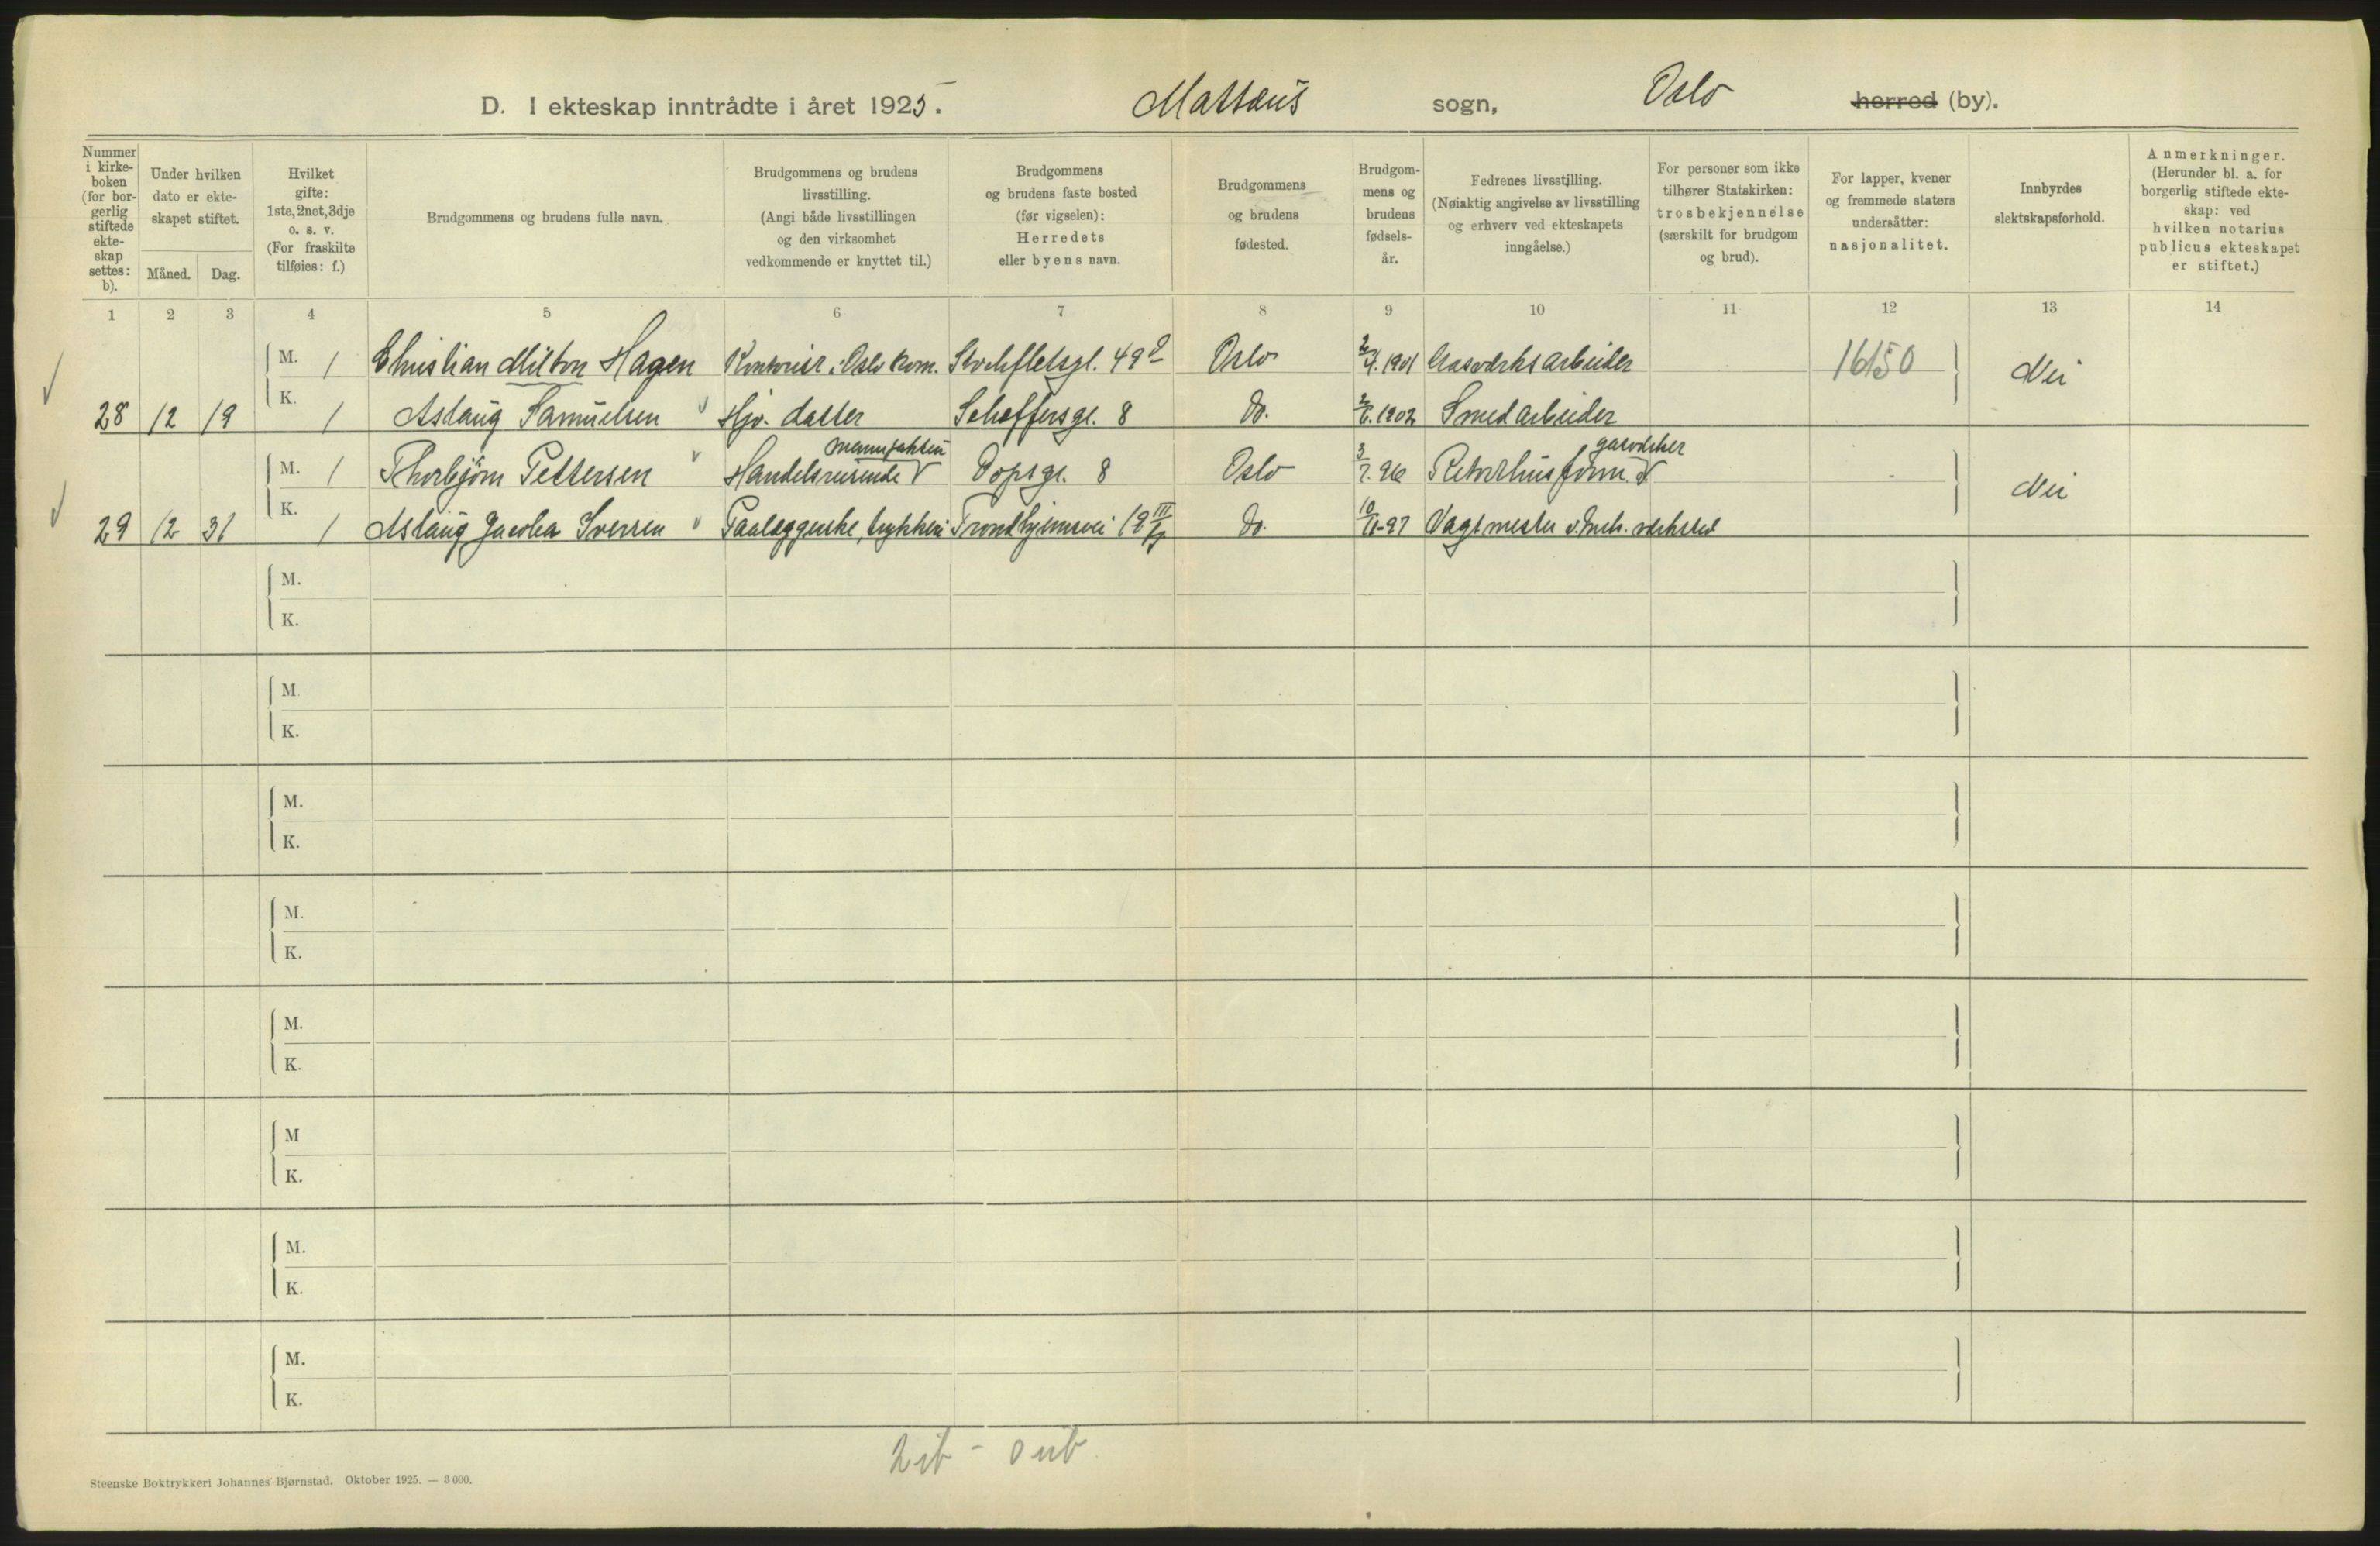 D. I ekteskap inntrådte i året 1925. Mattæus sogn, Oslo herred (by).
Nummer i kirke-boken (for bor-gerlig stiftede ekte-skap settes: b).
Under hvilken dato er ekte-skapet stiftet.
Måned. Dag.
Hvilket gifte: 1ste, 2net, 3dje o. s. v. (For fraskilte tilføies: f.)
Brudgommens og brudens fulle navn.
Brudgommens og brudens livsstilling. (Angi både livsstillingen og den virksomhet vedkommende er knyttet til.)
Brudgommens og brudens faste bosted (før vigselen): Herredets eller byens navn.
Brudgommens og brudens fødested.
Brudgom-mens og brudens fødsels-år.
Fedrenes livsstilling. (Nøiaktig angivelse av livsstilling og erhverv ved ekteskapets inngåelse.)
For personer som ikke tilhører Statskirken: trosbekjennelse (særskilt for brudgom og brud).
For lapper, kvener og fremmede staters undersåtter: nasjonalitet.
Innbyrdes slektskapsforhold.
Anmerkninger. (Herunder bl. a. for borgerlig stiftede ekte-skap: ved hvilken notarius publicus ekteskapet er stiftet.)
1 2 3 4 5 6 7 8 9 10 11 12 13 14
M. 1 Christian Milton Hagen Kontorist i Oslo kom. Stockfletsgt. 49 Oslo 2/4. 1901 Gasværksarbeider 16150 Nei
28 12 19 K. 1 Aslaug Samuelsen Hjv. datter Schoffersgt. 8 do. 2/6. 1902 Smedarbeider
manufaktur gasverket
M. 1 Thorbjörn Pettersen Handelsreisende V Dopsgt. 8 Oslo 3/7. 96 Retorthusform. V Nei
29 12 31 K. 1 Aslaug Jacobea Iversen Paalæggerske, trykkeri Trondhjemsvei 19 III do. 10/11-97 Vagtmester v. Mek. verksted
M.
K.
M.
K.
M.
K.
M.
K.
M.
K.
M
K.
M.
K.
M.
K.
2 ib - 0 uib
Steenske Boktrykkeri Johannes Bjørnstad. Oktober 1925. — 3 000.